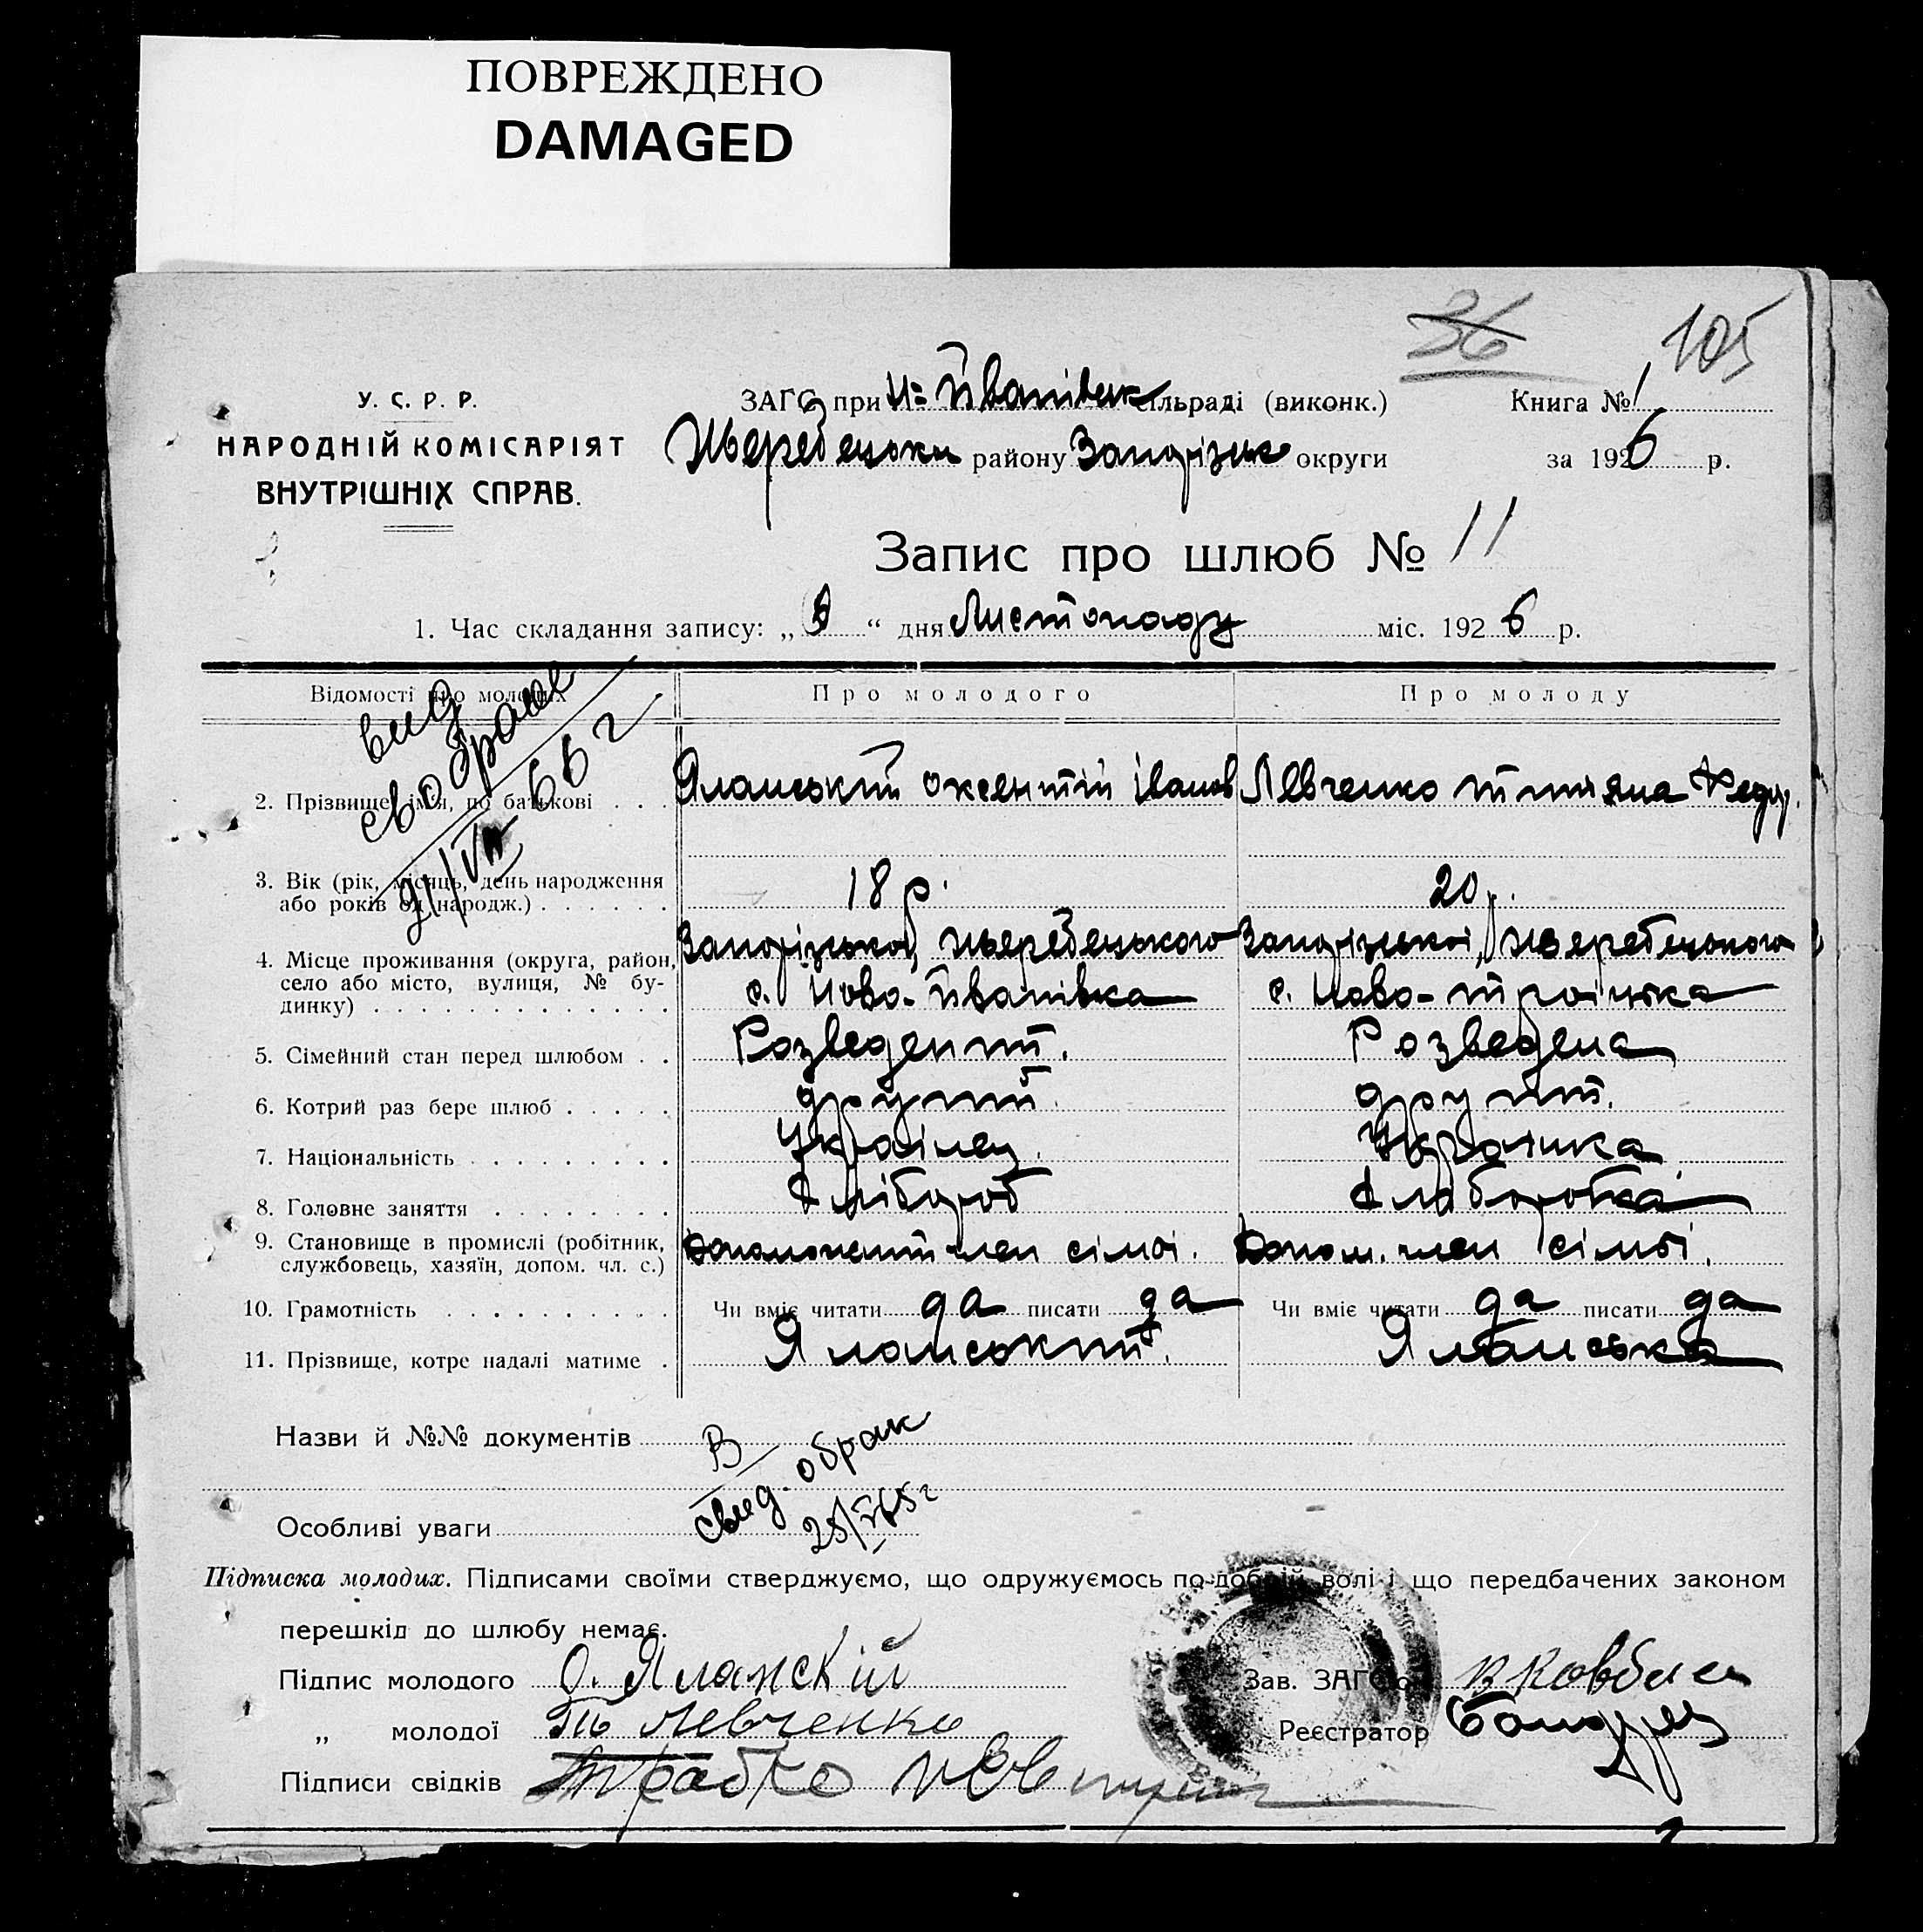 ПОВРЕЖДЕНО
DAMAGED
36
105
У. С. Р. Р.
НАРОДНІЙ КОМІСАРІЯТ
ВНУТРІШНІХ СПРАВ.
ЗАГС при Н=Йванівськ сільраді (виконк.)
Книга № 1
Жеребецьки району Запорізьк округи
за 1926 р.
Запис про шлюб № 11
1. Час складання запису: „ “ дня Листопаду міс. 1926 р.
Відомості про молодих
Про молодого
Про молоду
вид
сво брак
21/VII 66 г
2. Прізвище, імя, по батькові . . .
Яланський Оксентій Іванов
Левченко Титяна Федор.
3. Вік (рік, місяць, день народження
або років од народж.) . . . . . .
18 р.
20 р.
4. Місце проживання (округа, район,
село або місто, вулиця, № бу-
динку) . . . . . . . . . . . . .
Запорізької, Жеребецького
с. Ново-Йванівка
Запорізької, Жеребецького
с. Ново-Троіцька
5. Сімейний стан перед шлюбом . .
Розведений.
Розведена
6. Котрий раз бере шлюб . . . . .
другий.
другий.
7. Національність . . . . . . . . .
Українец.
Українка
8. Головне заняття . . . . . . . .
Хлібороб
Хлиборобка
9. Становище в промислі (робітник,
службовець, хазяїн, допом. чл. с.)
Допоможний член сімьі.
Допом. член сімьі.
10. Грамотність . . . . . . . . . .
Чи вміє читати да писати да
Чи вміє читати да писати да
11. Прізвище, котре надалі матиме .
Яланський.
Яланська
Назви й №№ документів
В
свид. о брак
25/VI 65 г
Особливі уваги
Підписка молодих. Підписами своїми стверджуємо, що одружуємось по добрій волі і що передбачених законом
перешкід до шлюбу немає.
Підпис молодого О. Яланскій
Зав. ЗАГС'ом
„ молодої Левченко
Реєстратор
Підписи свідків